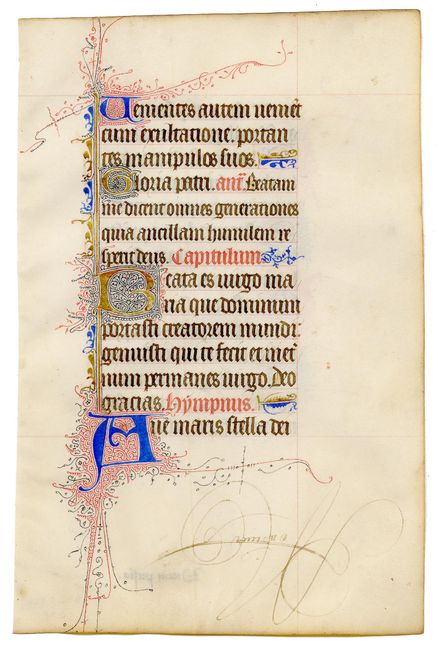 Uenientes autem ueniēt
cum exultatione: portan
tes manipulos suos.
Gloria patri. añ. Beatam
me dicent omnes generationes
quia ancillam humilem re
spexit deus. Capitulum
Beata es uirgo ma
ria que dominum
portasti creatorem mundi
genuisti qui te fecit et inet̄
num permanes uirgo. Deo
gracias. Hympnus.
Aue maris stella dei